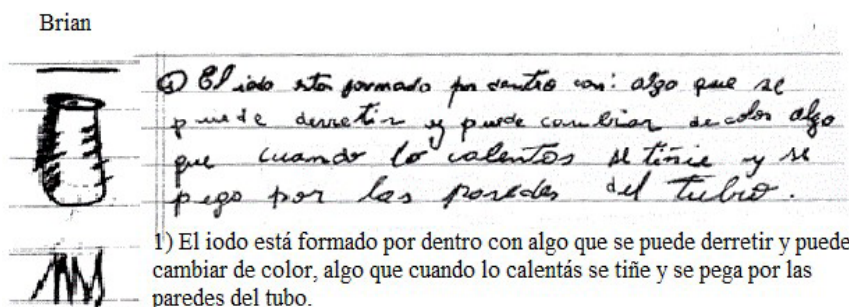 Brian
1) El iodo esta formado por dentro con: algo que se
puede derretir y puede cambiar de color algo
que cuando lo calentas se tiñie y se
pega por las paredes del tubro.
1) El iodo está formado por dentro con algo que se puede derretir y puede
cambiar de color, algo que cuando lo calentás se tiñe y se pega por las
paredes del tubo.